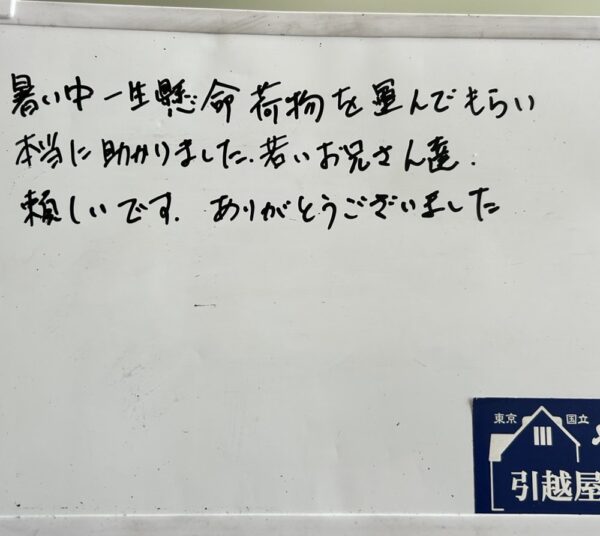 暑い中一生懸命荷物を運んでもらい
本当に助かりました。若いお兄さん達、
頼しいです。ありがとうございました
東京 国立
引越屋